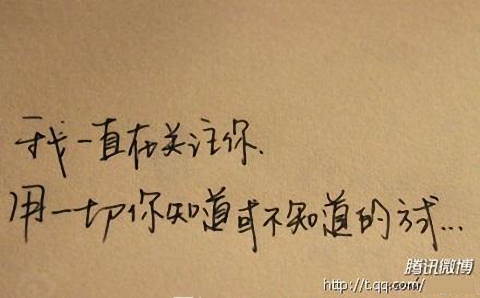 我一直在关注你.
用一切你知道或不知道的方式...
腾讯微博
http://t.qq.com/